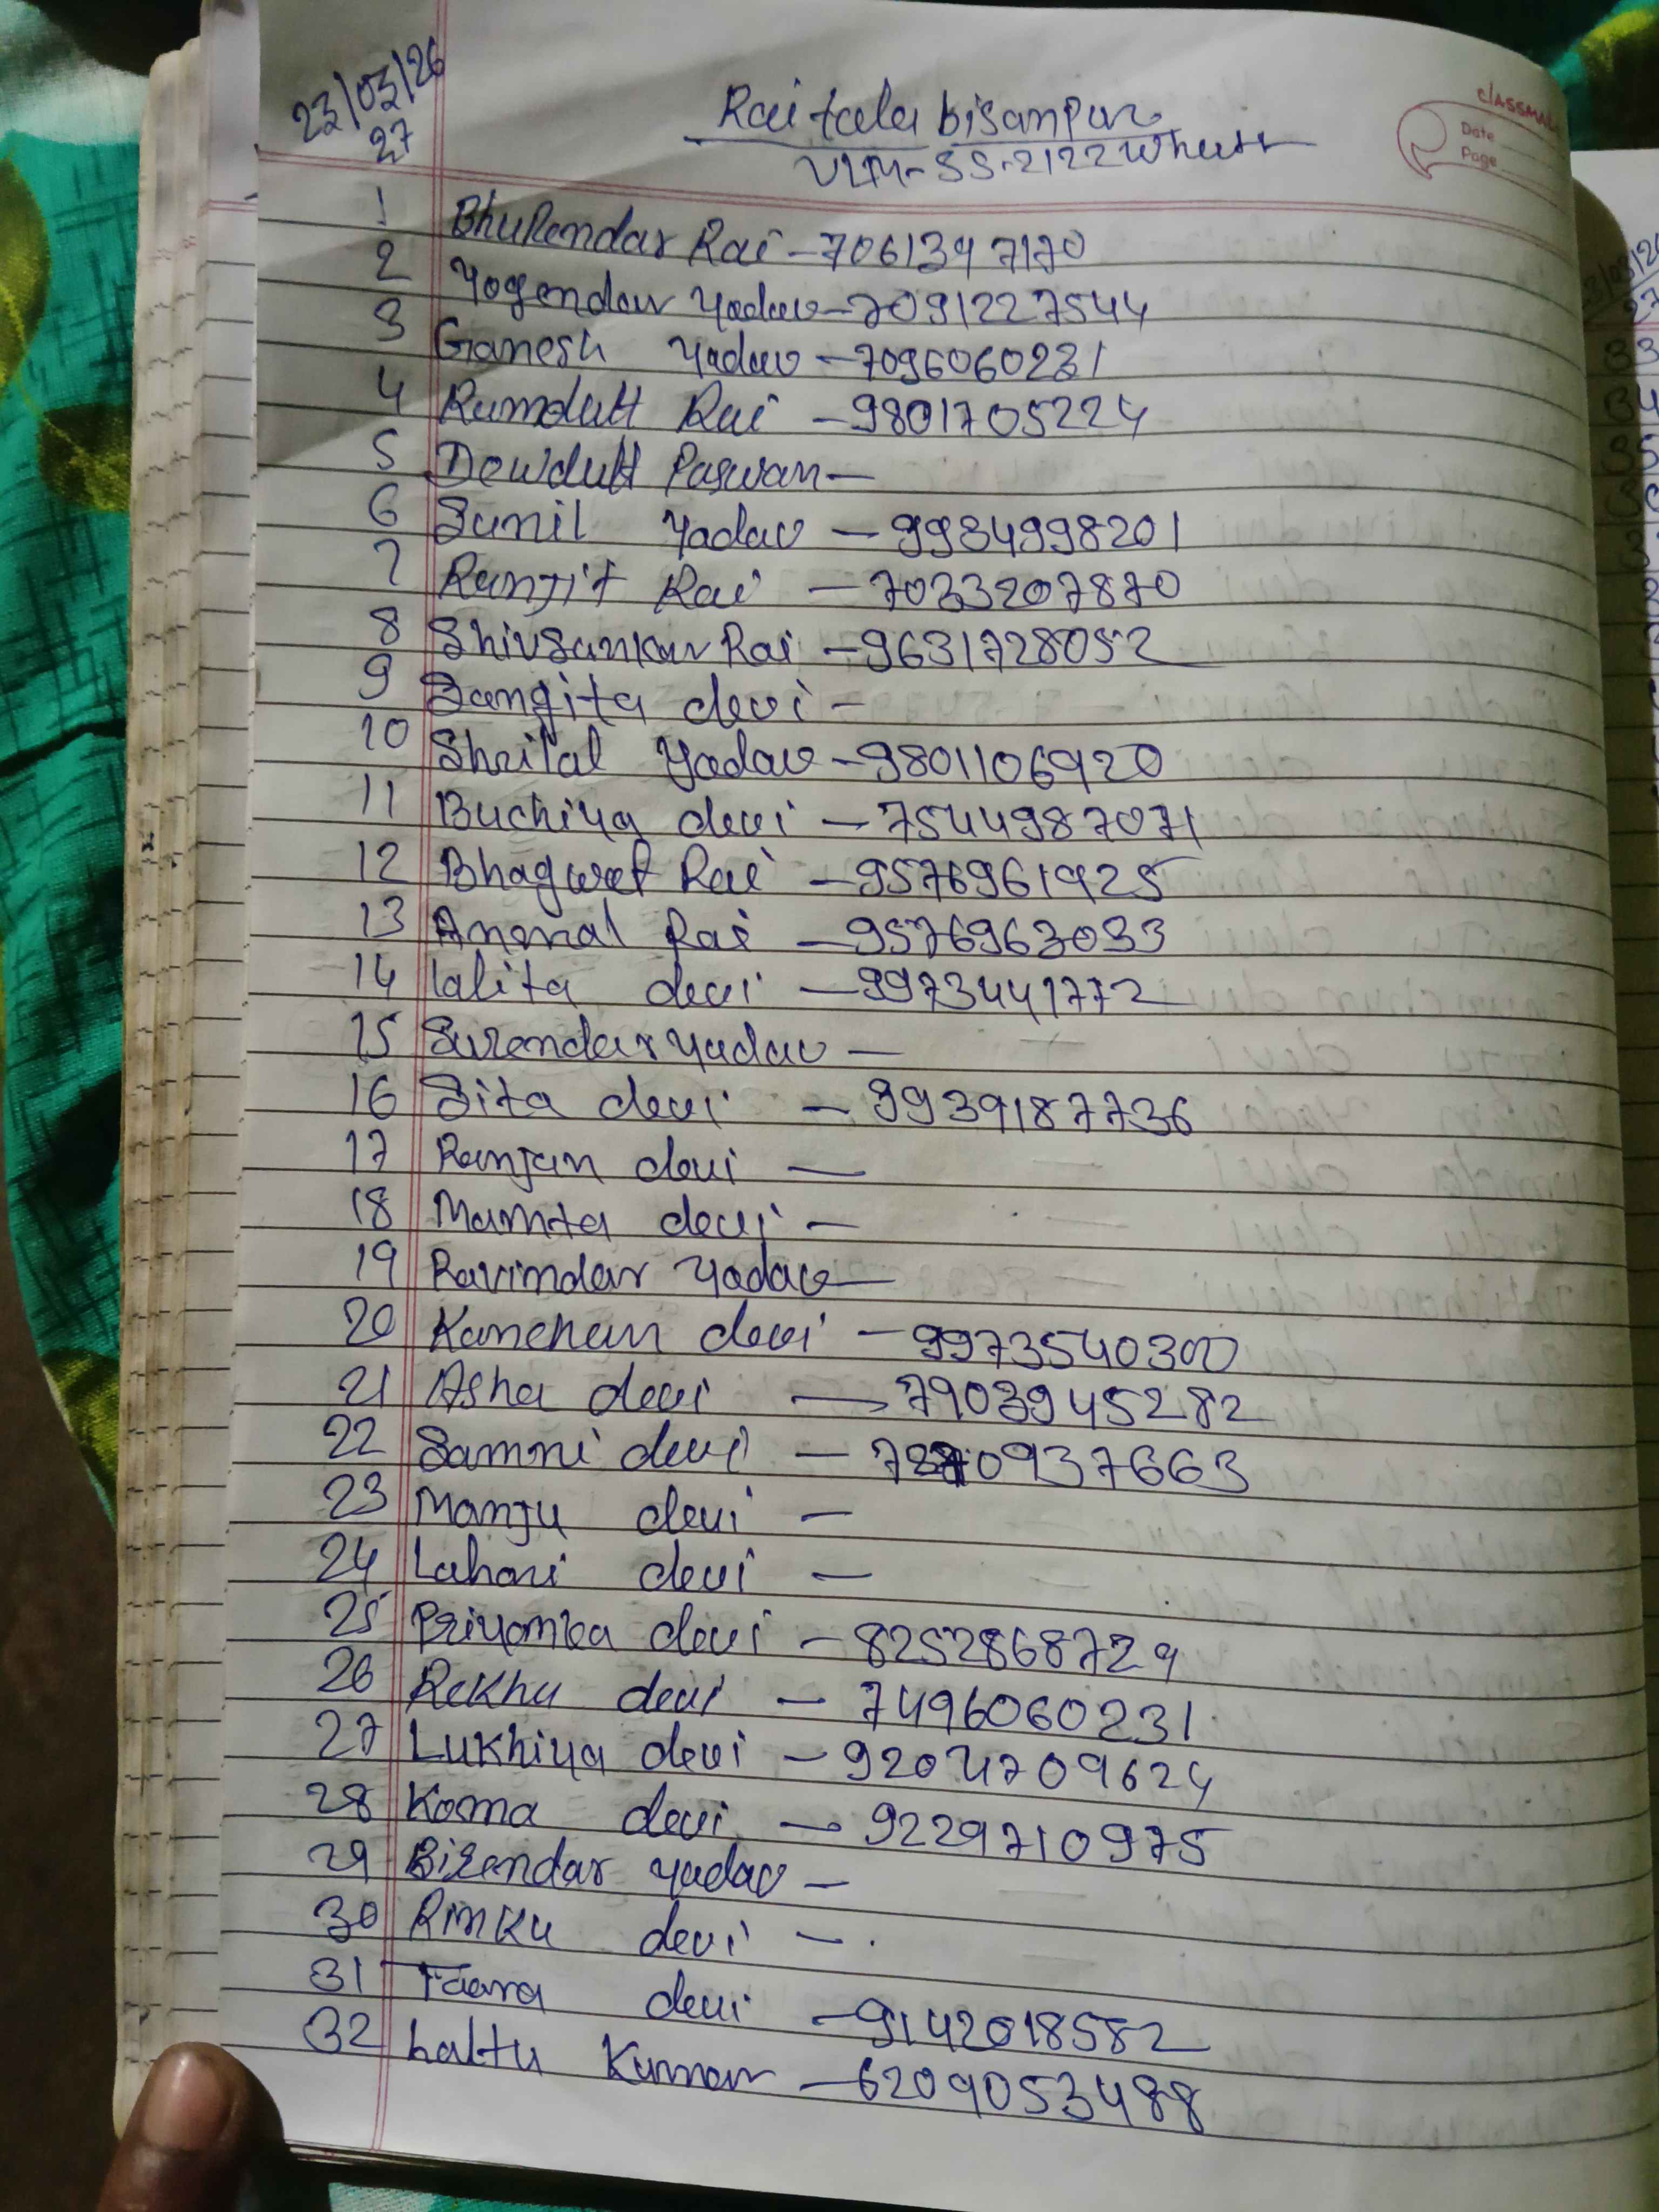 23/03/26
27
Raitola bisanpur
VLM-SS-2122 Wheat
classmate
Date
Page
1 Bhupendar Rai - 7061347170
2 Yogendar Yadav - 7091227544
3 Ganesh Yadav - 7096060231
4 Ramdutt Rai - 9801705224
5 Dewdutt Paswan -
6 Sunil Yadav - 9934998201
7 Ranjit Rai - 7033207870
8 Shivsankar Rai - 9631728052
9 Sangita devi -
10 Shrilal Yadav - 9801106920
11 Buchiya devi - 7544987071
12 Bhagwat Rai - 9576961925
13 Anmol Rai - 9576963033
14 lalita devi - 9973441772
15 Surendar Yadav -
16 Sita devi - 9939187736
17 Ranjan devi -
18 Mamta devi -
19 Ravindar Yadav -
20 Kanchan devi - 9973540300
21 Asha devi - 7903945282
22 Samni devi -
23 Manju devi -
24 Lahari devi -
25 Priyanka devi - 8252868729
26 Rekha devi - 7496060231
27 Lukhiya devi - 9204709624
28 Koma devi - 9229710975
29 Birendar Yadav -
30 Rinku devi -
31 Taara devi - 9142018582
32 Laltu Kumar - 6209053488